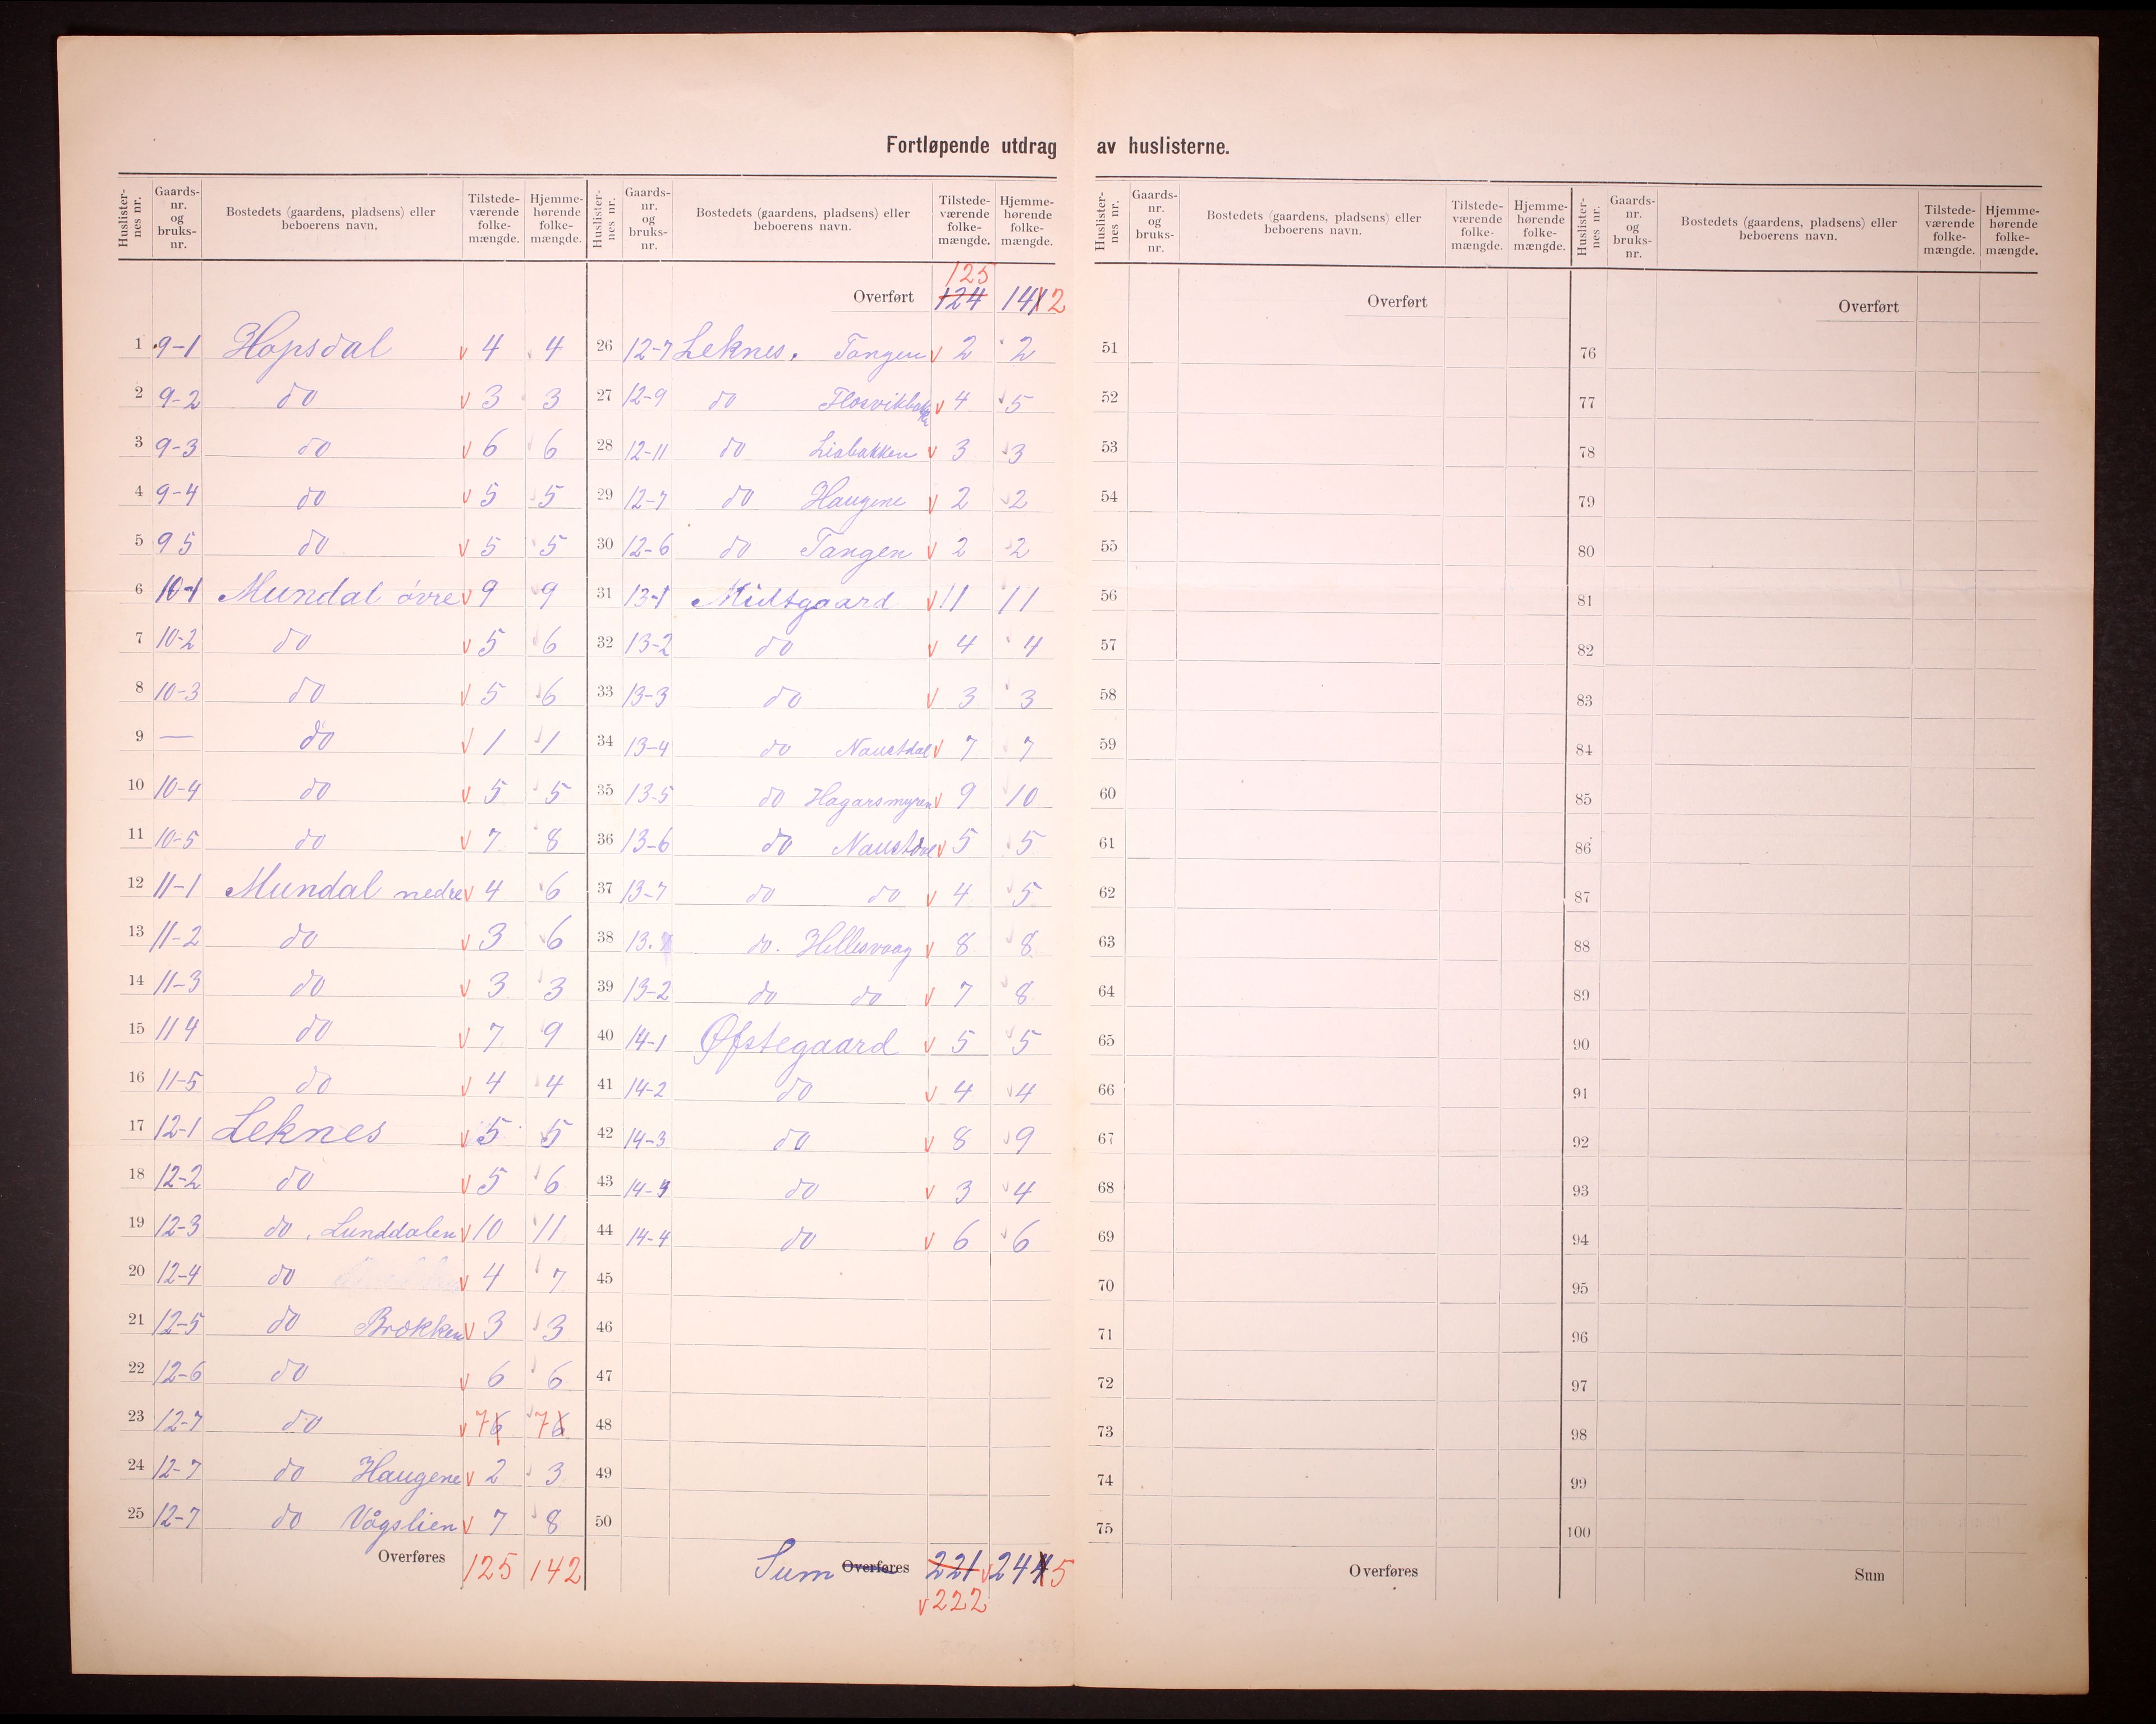 Fortløpende utdrag av huslisterne.
Huslisternes nr. Gaards-nr. og bruks-nr. Bostedets (gaardens, pladsens) eller beboerens navn. Tilstede-værende folke-mængde. Hjemme-hørende folke-mængde.
1 9-1 Hopsdal v 4 4
2 9-2 do v 3 3
3 9-3 do v 6 6
4 9-4 do v 5 5
5 9 5 do v 5 5
6 10-1 Mundal øvre v 9 9
7 10-2 do v 5 6
8 10-3 do v 5 6
9 — do v 1 1
10 10-4 do v 5 5
11 10-5 do v 7 8
12 11-1 Mundal nedre v 4 6
13 11-2 do v 3 6
14 11-3 do v 3 3
15 11 4 do v 7 9
16 11-5 do v 4 4
17 12-1 Leknes v 5 5
18 12-2 do v 5 6
19 12-3 do, Lunddalen v 10 11
20 12-4 do v 4 7
21 12-5 do Brekken v 3 3
22 12-6 do v 6 6
23 12-7 do v 7 6 7 6
24 12-7 do Haugene v 2 3
25 12-7 do Vågslien v 7 8
Overføres 125 142
Huslisternes nr. Gaards-nr. og bruks-nr. Bostedets (gaardens, pladsens) eller beboerens navn. Tilstede-værende folke-mængde. Hjemme-hørende folke-mængde.
125
Overført 124 141 2
26 12-7 Leknes, Tangen v 2 2
27 12-9 do v 4 5
28 12-11 do Liabakken v 3 3
29 12-7 do Haugene v 2 2
30 12-6 do Tangen v 2 2
31 13-1 Midtgaard v 11 11
32 13-2 do v 4 4
33 13-3 do v 3 3
34 13-4 do Naustdal v 7 7
35 13-5 do Hagarsmyren v 9 10
36 13-6 do Naustdal v 5 5
37 13-7 do do v 4 5
38 13. do. Hellesvaag v 8 8
39 13-2 do do v 7 8
40 14-1 Øfstegaard v 5 5
41 14-2 do v 4 4
42 14-3 do v 8 9
43 14-4 do v 3 4
44 14-4 do v 6 6
45
46
47
48
49
50
Sum Overføres 221 v 244 5
v 222
Huslisternes nr. Gaards-nr. og bruks-nr. Bostedets (gaardens, pladsens) eller beboerens navn. Tilstede-værende folke-mængde. Hjemme-hørende folke-mængde.
Overført
51
52
53
54
55
56
57
58
59
60
61
62
63
64
65
66
67
68
69
70
71
72
73
74
75
Overføres
Huslisternes nr. Gaards-nr. og bruks-nr. Bostedets (gaardens, pladsens) eller beboerens navn. Tilstede-værende folke-mængde. Hjemme-hørende folke-mængde.
Overført
76
77
78
79
80
81
82
83
84
85
86
87
88
89
90
91
92
93
94
95
96
97
98
99
100
Sum